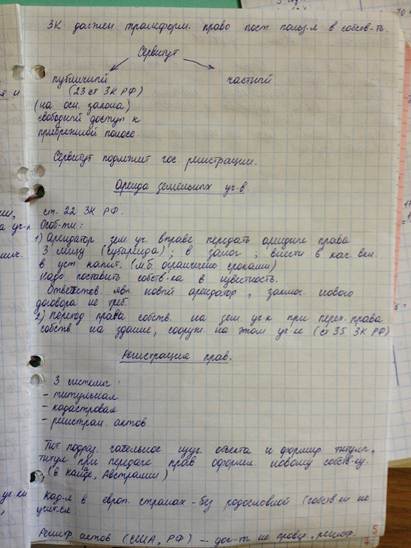 ЗК должен трансформ. право пост польз-я в собств-ть.
Сервитут
публичный
частный
(23 ст ЗК РФ)
(на осн. закона)
свободный доступ к
прибрежной полосе
Сервитут подлежит гос регистрации.
Аренда земельных уч-в.
ст. 22 ЗК РФ.
Особ-ти:
1) Арендатор зем уч. вправе передать арендные права
3 лицу (субаренда); в залог; внести в кач. вкл.
в уст. капит. (м.б. ограничено сроками)
Надо поставить собств-ка в известность.
Ответств. явл новый арендатор, заключ. нового
договора не треб.
2) переход права собств. на зем. уч-к при перех. права
собств на здание, сооруж. на этом уч-ке (ст 35 ЗК РФ)
Регистрация прав.
3 системы:
- титульная
- кадастровая
- регистрац. актов
Тит подраз. изуч. объекта и формир титула,
титул при передаче прав оформл. новому собств-ку.
(в Канаде, Австралии)
Кад-я в европ. странах - без родословной (собств-ки не
Регистр актов (США, РФ) — не провер,